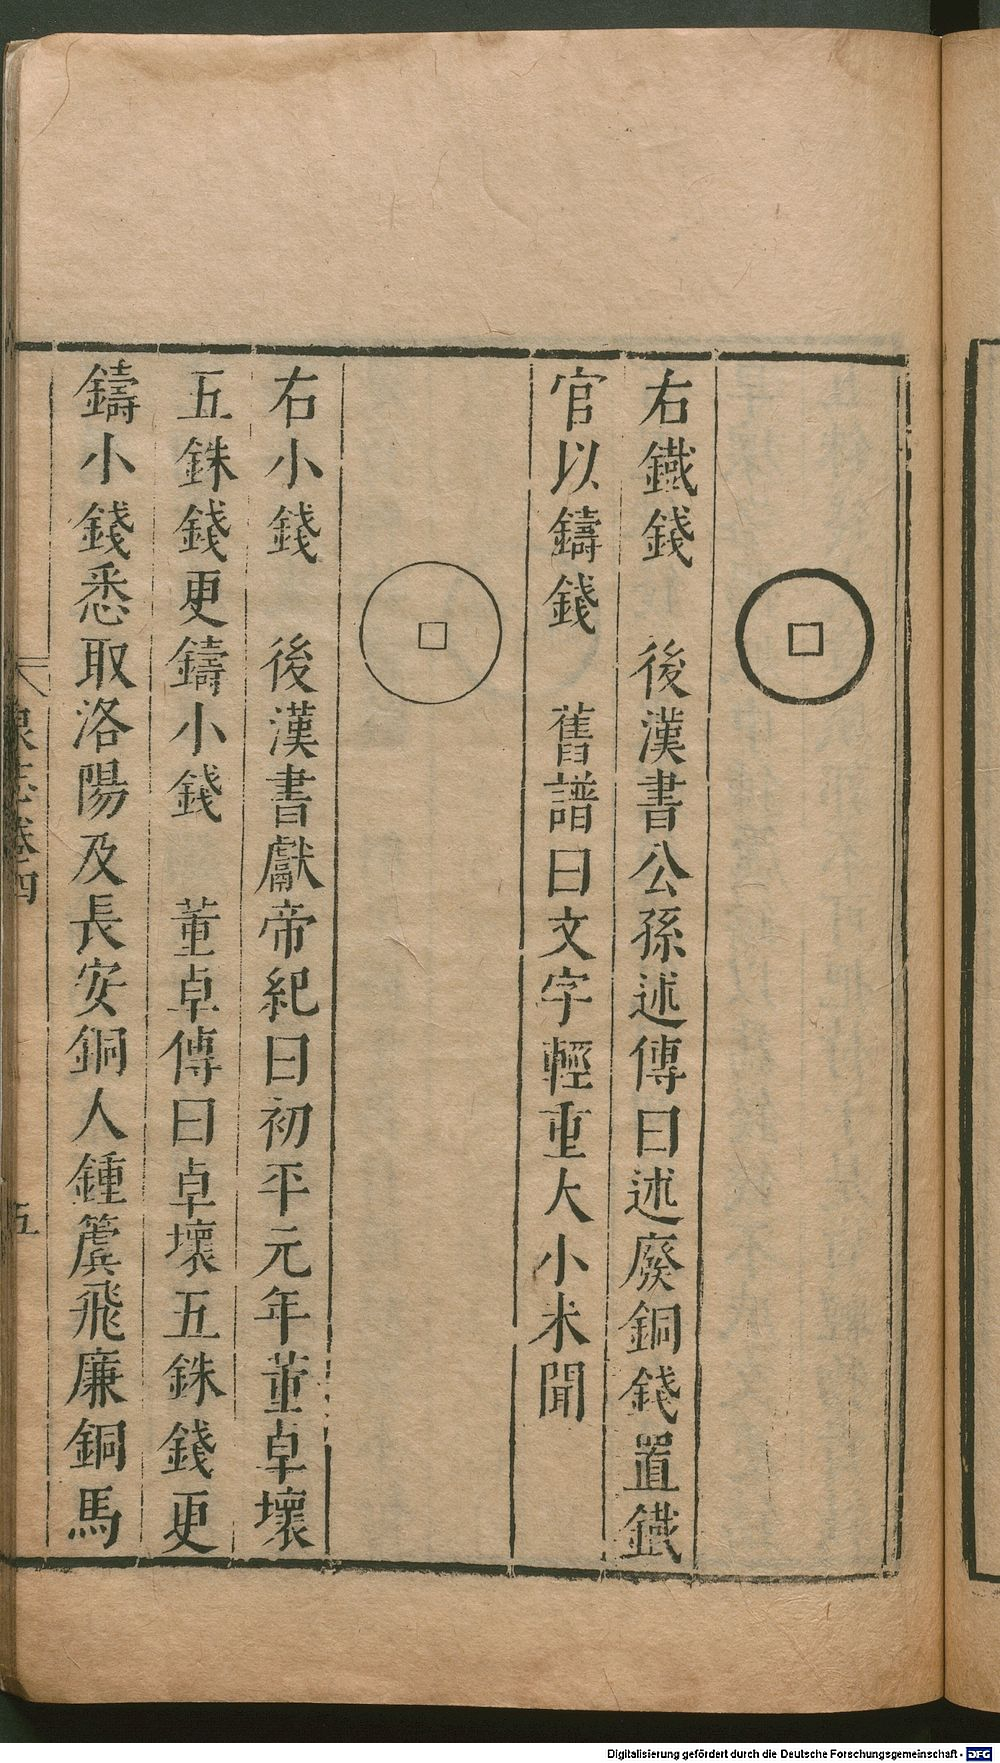 右鐵錢　後漢書公孫述傳曰述廢銅錢置鐵
官以鑄錢　舊譜曰文字輕重大小未聞
右小錢　後漢書獻帝紀曰初平元年董卓壞
五銖錢更鑄小錢　董卓傳曰卓壞五銖錢更
鑄小錢悉取洛陽及長安銅人鍾簴飛廉銅馬
泉志卷四
五
Digitalisierung gefördert durch die Deutsche Forschungsgemeinschaft - DFG